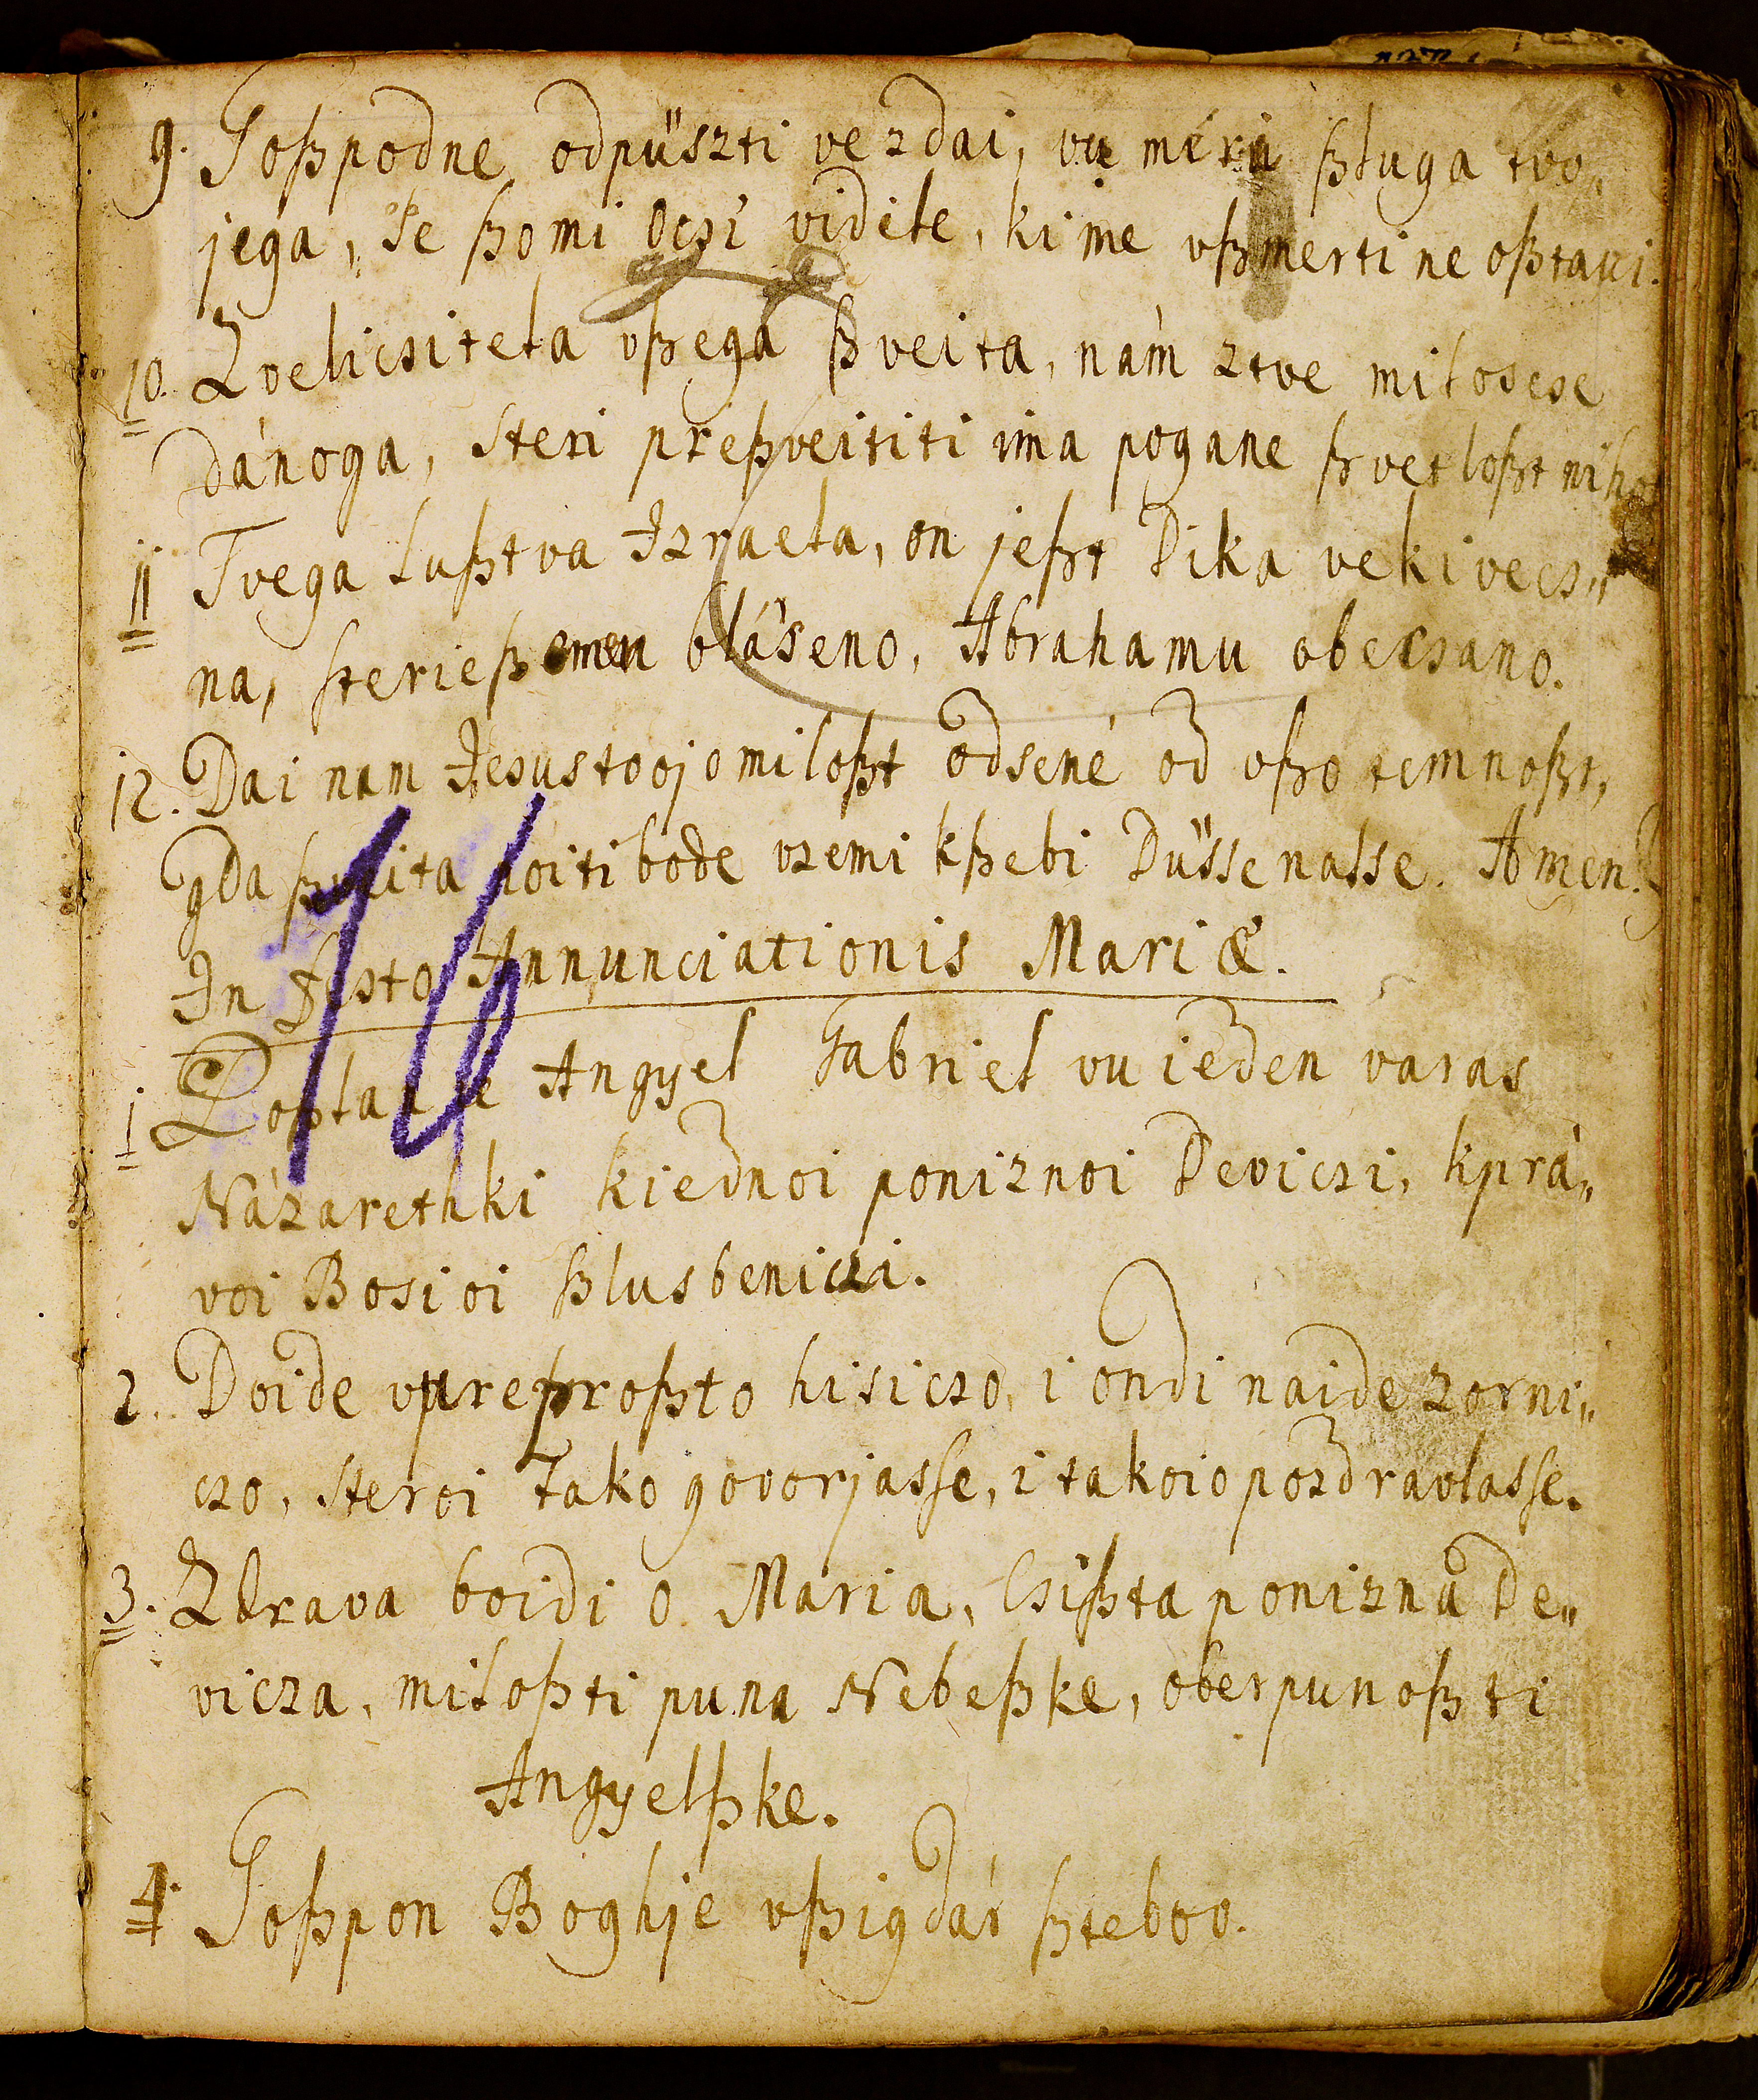 9. Goßpodne odpüszti vezdai, vu méru ßluga tvo„
jega, Je ßo mi Ocsi videle, ki me vßmerti ne oßtavi.
10. Zvelicsitela vßega ßveita, nám ztve miloscse
dánoga, steri preßveititi ima pogane ßvetloßt niho
11 Tvega lußtva Izraela, on jeßt Dika vekivecs„
na, sterießemen bláseno, Abrahamu obecsano.
12. Dai nam Jesus tvojo miloßt odsené od vßo temnoßt,
gda ßveita noiti bode vzemi kßebi Düsse nasse. Amen.
In Festo Annunciationis Mariæ.
1 Poßlan je Angyel Gabriel vu ieden varas
Názarethki kiednoi poniznoi Deviczi, kprá„
voi Bosioi ßlusbeniczi.
2. Doide vu preproßto hisiczo, i ondi naide zorni„
czo, steroi tako govorjasse, i takoio pozdravlasse.
3. Zdrava boidi o Maria, Csißta ponizna De„
vicza, miloßti puna Nebeßke, ober punoßti
Angyelßke.
4. Goßpon Bog hje vßigdár ßtebvo.
14